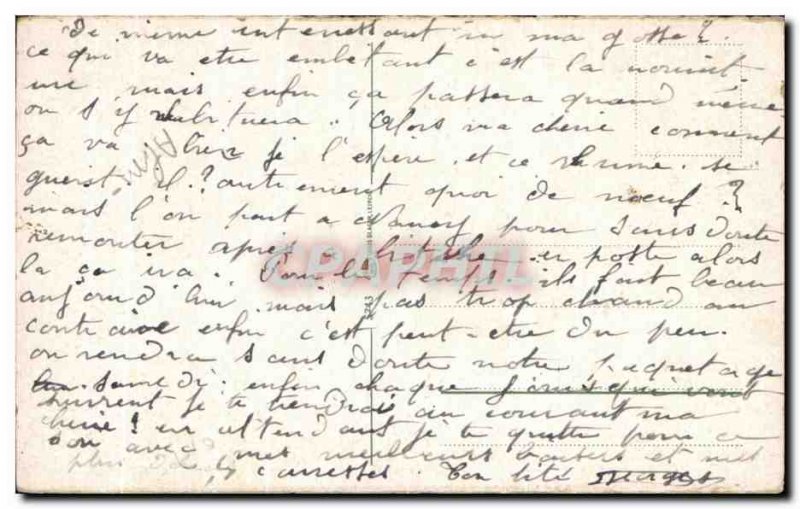 de même intenessant in ma gosse?
ce qui va etre embetant c'est la nourrit
ure mais enfin ça passera quand même
on s'y habituera. Alors ma cherie comment
ça va bien je l'espere et ce rhume se
guerit il? autrement quoi de noeuf?
mais l'on part a Nancy pour sans doute
remonter après en poste alors
la ça ira. Pour le temps ils fait beau
aujourd'hui mais pas trop chaud au
contraire enfin c'est peut-etre du peu.
on rendra sans doute notre paquetage
samedi: enfin chaque jours qui vont
suivrent je te tiendrai au courant ma
cherie! en attendant je te quitte pour ce
soir avec mes meilleurs baisers et mes
plus caresses. Ton
CPAPHIL
5243